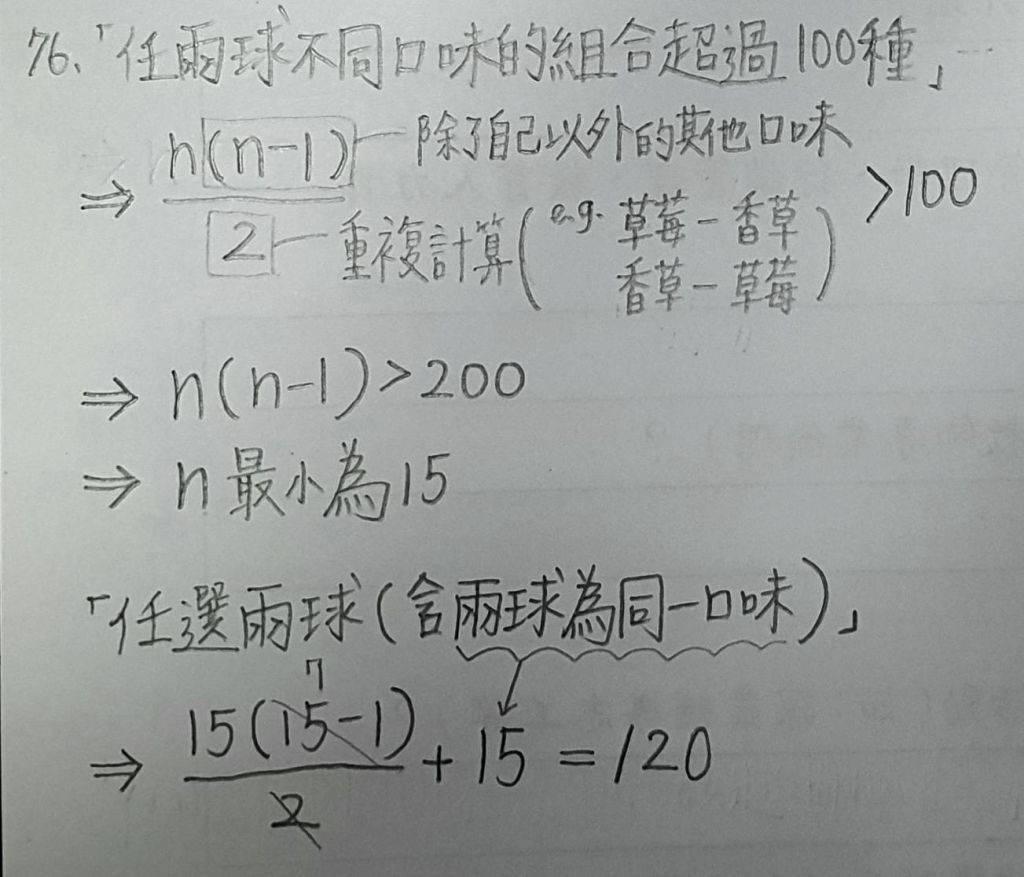 76、「任兩球不同口味的組合超過100種」
⇒ n(n-1)/2 > 100
除了自己以外的其他口味
重複計算(e.g. 草莓-香草
香草-草莓)
⇒ n(n-1)>200
⇒ n最小為15
「任選兩球(含兩球為同一口味)」
7
⇒ 15(15-1)/2 + 15 = 120